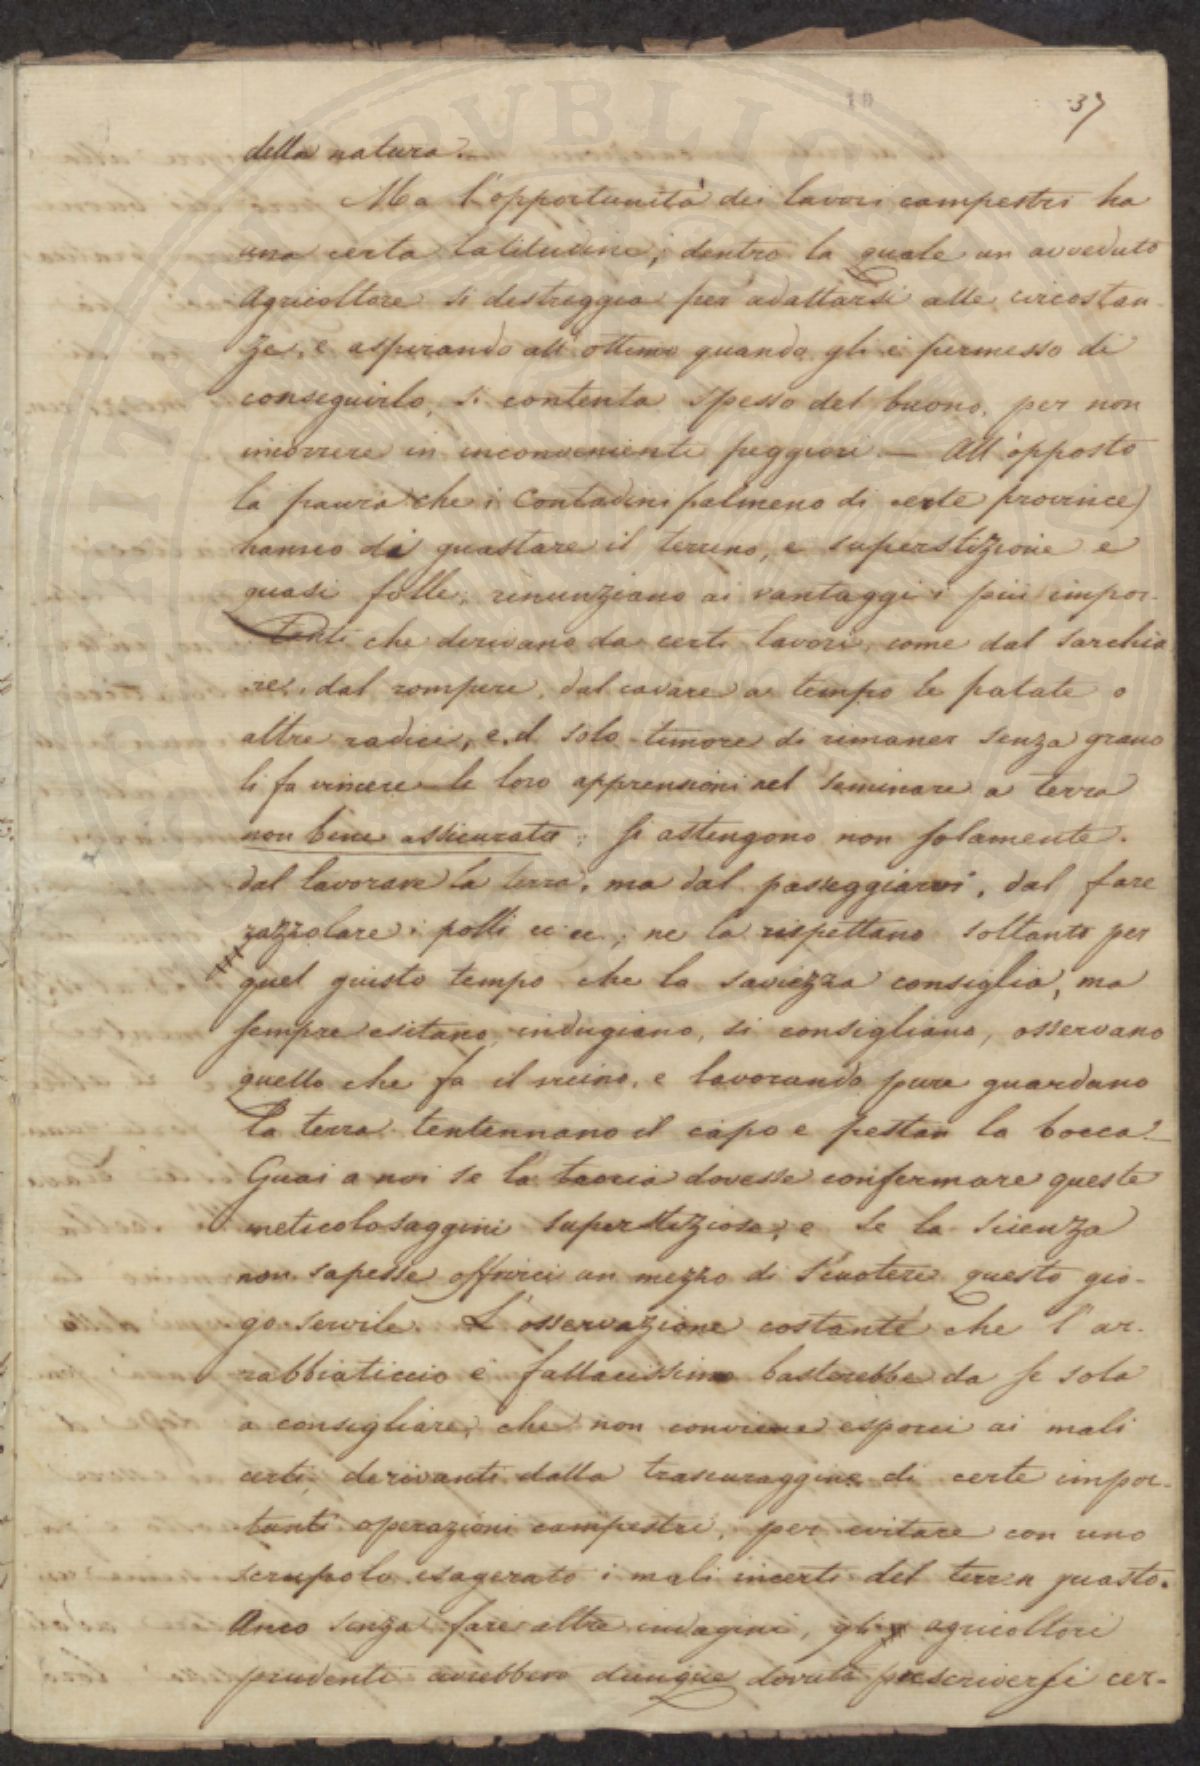 10
37
della natura.
Ma l'opportunità dei lavori campestri ha
una certa latitudine, dentro la quale un avveduto
Agricoltore si destreggia per adattarsi alle circostan-
ze, e aspirando all'ottimo quando gli è permesso di
conseguirlo, si contenta spesso del buono, per non
incorrere in inconvenienti peggiori — All'opposto
la paura che i Contadini (almeno di certe province)
hanno di guastare il terreno, e superstizione e
quasi folle; rinunziano ai vantaggi i più impor-
tanti che derivano da certi lavori, come dal sarchia
re, dal rompere, dal cavare a tempo le patate o
altre radici, e il solo timore di rimaner senza grano
li fa vincere le loro apprensioni nel seminare a terra
non bene assicurata; si astengono non solamente
dal lavorare la terra, ma dal passeggiarvi, dal fare
razzolare i polli ec ec; ne la rispettano soltanto per
quel giusto tempo che la saviezza consiglia, ma
sempre esitano, indugiano, si consigliano, osservano
quello che fa il vicino, e lavorando pure guardano
la terra tentennano il capo e pestan la bocca —
Guai a noi se la teoria dovesse confermare queste
meticolosaggini superstiziose, e se la scienza
non sapesse offrirci un mezzo di scuotere questo gio-
go servile. L'osservazione costante che l'ar-
rabbiaticcio è fallacissimo basterebbe da se sola
a consigliare, che non conviene esporci ai mali
certi, derivanti dalla trascuraggine di certe impor-
tanti operazioni campestri, per evitare con uno
scrupolo esagerato i mali incerti del terren guasto.
Anco senza fare altre indagini, gli agricoltori
prudenti avrebbero dunque dovuto prescriversi cer-